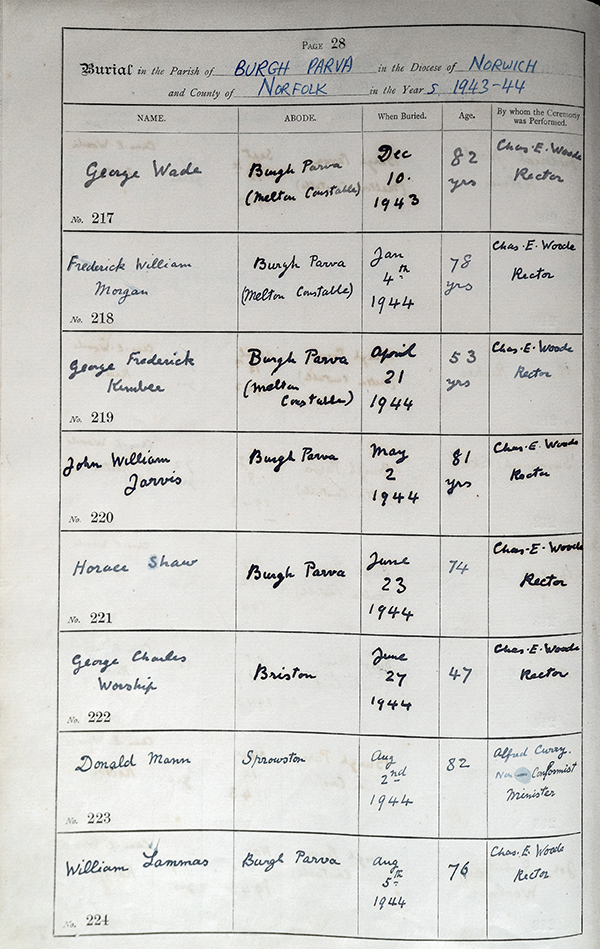 PAGE 28
Burial in the Parish of BURGH PARVA in the Diocese of NORWICH
and County of NORFOLK in the Years 1943-44
NAME. ABODE. When Buried. Age. By whom the Ceremony was Performed.
George Wade
No. 217
Burgh Parva
(Melton Constable)
Dec
10.
1943
82
yrs
Chas. E. Woode
Rector
Frederick William
Morgan
No. 218
Burgh Parva
(Melton Constable)
Jan
4th
1944
78
yrs
Chas. E. Woode
Rector
George Frederick
No. 219
Burgh Parva
(Melton
Constable)
April
21
1944
53
yrs
Chas. E. Woode
Rector
John William
Jarvis
No. 220
Burgh Parva
May
2
1944
81
yrs
Chas. E. Woode
Rector
Horace Shaw
No. 221
Burgh Parva
June
23
1944
74
Chas. E. Woode
Rector
George Charles
Worship
No. 222
Briston
June
27
1944
47
Chas. E. Woode
Rector
Donald Mann
No. 223
Sprowston
Aug
2nd
1944
82
Alfred Curry.
Non-Conformist
Minister
William Lammas
No. 224
Burgh Parva
Aug
5th
1944
76
Chas. E. Woode
Rector